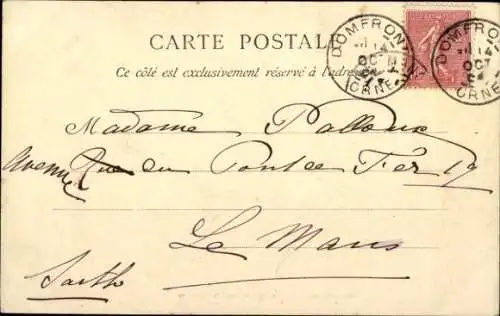 CARTE POSTALE
Ce côté est exclusivement réservé à l'adresse
DOMFRONT
14
OCT
ORNE
DOMFRONT
14
OCT
04
ORNE
Madame Palloux
Avenue Rue du Pont de Fer 19
Le Mans
Sarthe